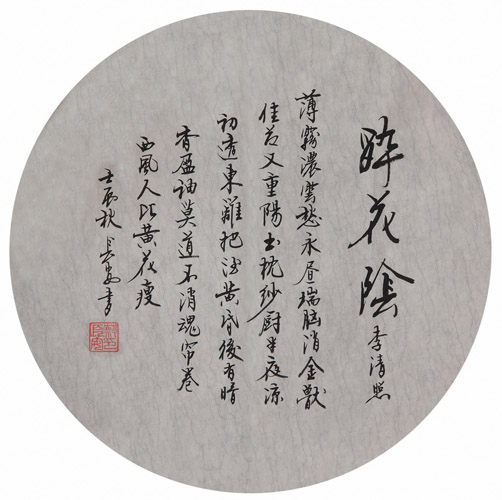 醉花陰
李清照
薄霧濃雲愁永昼瑞脑消金獸
佳节又重陽玉枕纱厨半夜凉
初透東離把酒黄昏後有暗
香盈袖莫道不消魂帘卷
西風人比黄花瘦
壬辰秋書